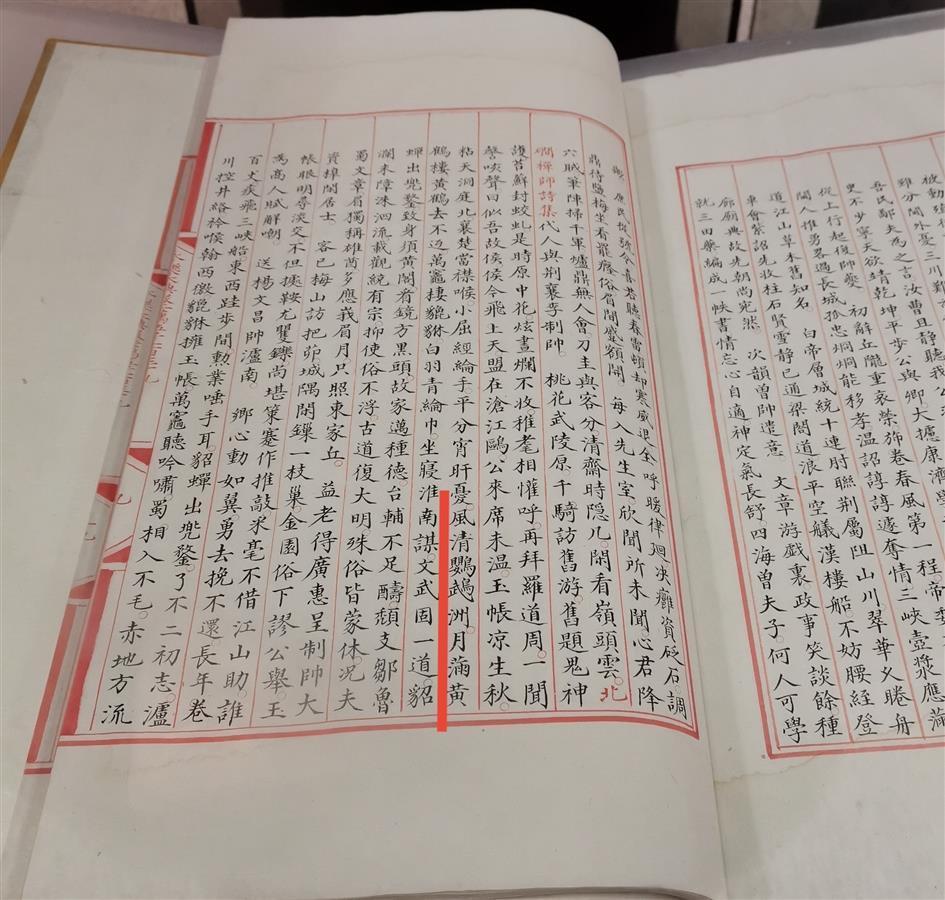 雖分閫外憂三川難
吾民鄙夫為之言汝曹且靜聽我公大攄康濟學
叟不少寧天欲靖乾坤平步公與卿
從上行起復帥夔　初辭丘隴重哀榮旆卷春風第一程帝委
閫人推勇畧過長城孤忠烱烱能移孝温詔諄諄遽奪情三峽壺漿應滿
道江山草木舊知名　白帝層城統十連肘聯荆屬阻山川翠華乆睠舟
車會紫詔先收柱石賢靈静已通梁閣道浪平空艤漢樓船不妨腰絰登
廊廟典故先朝尚宛然　次韻曾帥遣意　文章游戲裏政事笑談餘種
就三田藥編成一帙書情忘心自適神定氣長舒四海曾夫子何人可學
庶民從號令喜若聽春雷頓却寒威退全呼暖律廻決癰資砭石調
鼎待鹽梅坐看罷癃俗眉間蹙額開　每入先生室欣聞所未聞心君降
六賊筆陣掃千軍爐鼎無人會刀圭與客分清齋時隱几閑看嶺頭雲北
磵禪師詩集代人與荆襄李制帥　桃花武陵原千騎訪舊游舊題鬼神
護苔蘚封蛟虬是時原中花炫晝爛不收稚耄相懽呼再拜羅道周一聞
謦咳聲曰似吾故侯侯今飛上天盟在滄江鷗公來席未温玉帳凉生秋
粘天洞庭北襄楚當襟喉小屈經綸手平分宵旰憂風清鸚鵡洲月滿黃
鶴樓黃鶴去不迈萬竈棲貔貅白羽青綸巾坐寢淮南謀文武固一道貂
蟬出兜鍪致身須黃閣肴鏡方黑頭故家邁種德台輔不足醻頹支鄒魯
瀾末障洙泗流載觀統有宗抑使俗不浮古道復大明殊俗皆蒙休况夫
蜀文章眉獨稱雄酋多應我眉月只照東家丘　益老得廣惠呈制帥大
資樟閣居士　客已梅山訪把茆城隅閒鏁一枝巢金園俗下謬公舉玉
帳眼明尋淡交不但據鞍尤矍鑠尚堪策蹇作推敲釆毫不借江山助誰
為高人賦解嘲　送楊文昌帥瀘南　鄉心動如翼勇去挽不還長年卷
百丈疾飛三峽船東西跬歩間勳業唾手耳貂蟬出兜鍪了不二初志瀘
川控井絡衿喉翰西徼貔貅擁玉帳萬竈聽吟嘯蜀相入不毛赤地方流